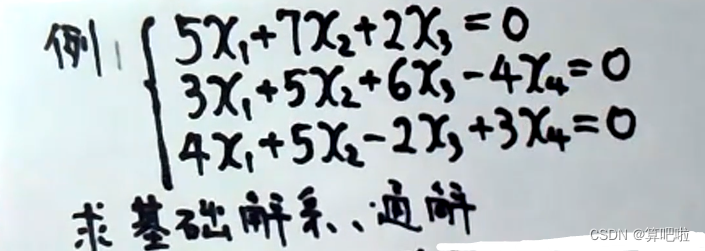 例1 { 5x₁+7x₂+2x₃=0
3x₁+5x₂+6x₃-4x₄=0
4x₁+5x₂-2x₃+3x₄=0
求基础解系、通解
CSDN @算吧啦